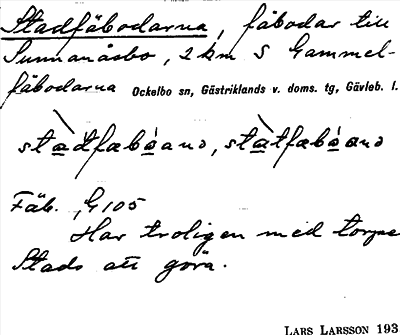 Stadfäbodarna, fäbodar till
Sunnanåsbo, 2 km S Gammel-
fäbodarna Ockelbo sn, Gästriklands v. doms. tg, Gävleb. l.
Fäb. G 105
Har troligen med torpe
Stads att göra.
LARS LARSSON 193